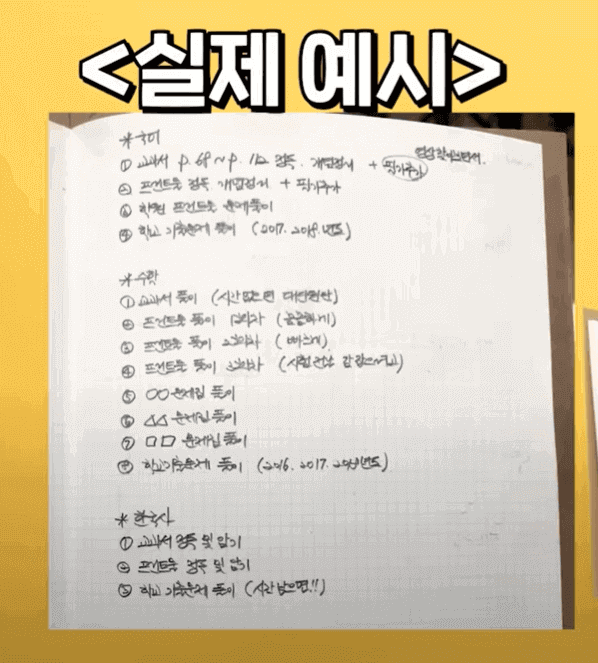 <실제 예시>
* 국어
① 교과서 p.68~p.112 정독. 개념정리 + 필기추가
② 프린트물 정독. 개념정리 + 필기추가
③ 학원 프린트물 문제풀이
④ 학교 기출문제 풀이 (2017. 2018.년도)
* 수학
① 교과서 풀이 (시간없으면 대단원만)
② 프린트물 풀이 1회차 (꼼꼼하게)
③ 프린트물 풀이 2회차 (빠르게)
④ 프린트물 풀이 3회차 (시험전날 감 잡으려고)
⑤ ○○ 문제집 풀이
⑥ △△ 문제집 풀이
⑦ □□ 문제집 풀이
⑧ 학교기출문제 풀이 (2016. 2017. 2018년도)
* 한국사
① 교과서 정독 및 암기
② 프린트물 정독 및 암기
③ 학교 기출문제 풀이 (시간 남으면!!)